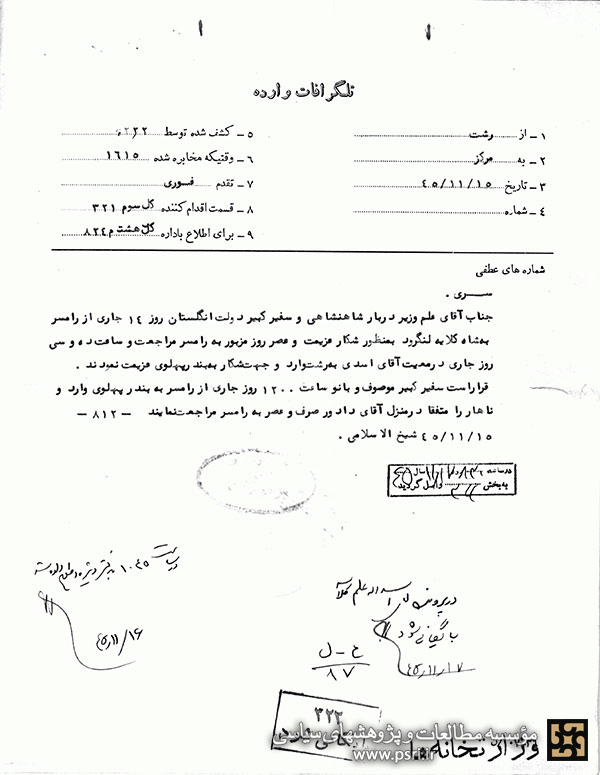 تلگرافات وارده
۱ـ از رشت
۲ـ به مرکز
۳ـ تاریخ ۴۵/۱۱/۱۵
۴ـ شماره
۵ـ کشف شده توسط
۶ـ وقتیکه مخابره شده ۱۶۱۵
۷ـ تقدم فوری
۸ـ قسمت اقدام کننده کل سوم ۳۲۱
۹ـ برای اطلاع باداره کل هشتم ۸۲۴
شماره های عطفی
سری .
جناب آقای علم وزیر دربار شاهنشاهی و سفیر کبیر دولت انگلستان روز ۱۴ جاری از رامسر
به شاه کلایه لنگرود بمنظور شکار عزیمت و عصر روز مزبور به رامسر مراجعت و ساعت ده و سی
روز جاری در معیت آقای اسدی به رشت وارد و جهت شکار به بندر پهلوی عزیمت نمودند .
قرار است سفیر کبیر موصوف و بانو ساعت ۱۲۰۰ روز جاری از رامسر به بندر پهلوی وارد و
ناهار را متفقا در منزل آقای دادور صرف و عصر به رامسر مراجعت نمایند – ۸۱۲ –
۴۵/۱۱/۱۵ شیخ الاسلامی .
به بخش ۳۲۲ واصل گردید
در پرونده اسداله علم
بایگانی شود
۴۵/۱۱/۱۷
ح – ل
۸۷
ساعت ۱۰۴۵ به دفتر ویژه اطلاع داده شد
۴۵/۱۱/۱۶
۳۲۲
مؤسسه مطالعات و پژوهشهای سیاسی
www.psri.ir